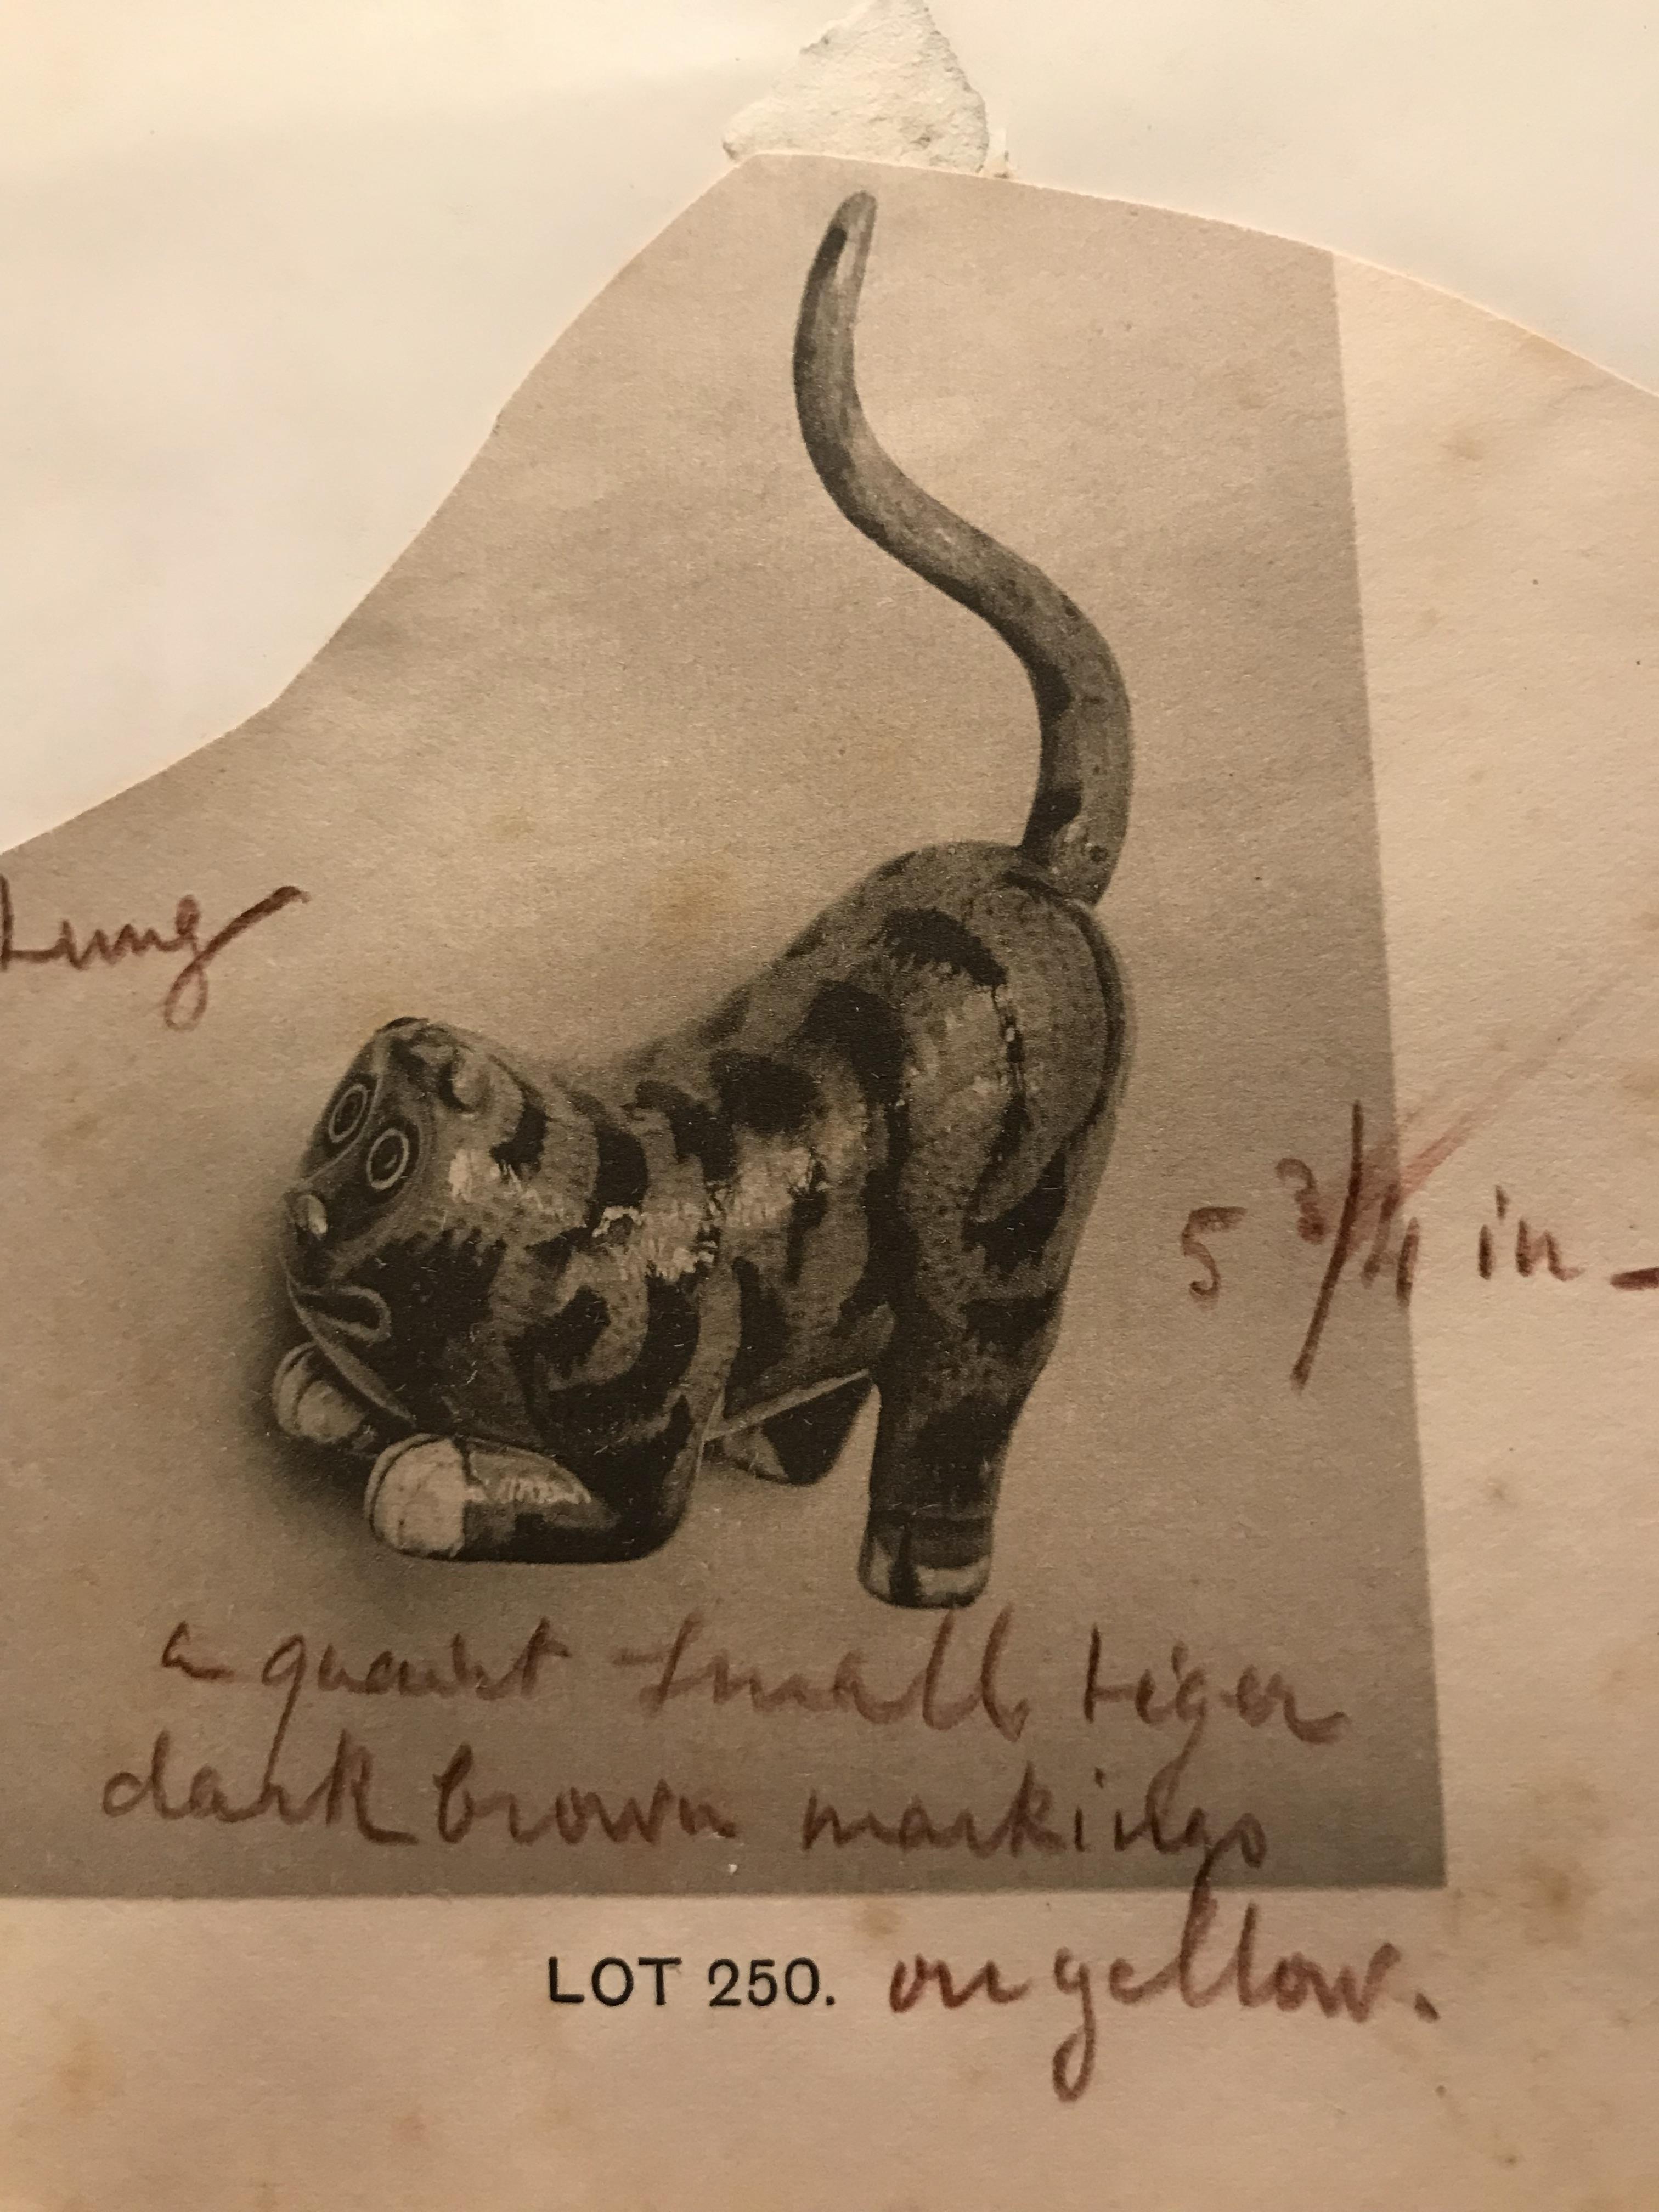 5 3/4 in
a quaint small tiger
dark brown markings
LOT 250. on yellow.